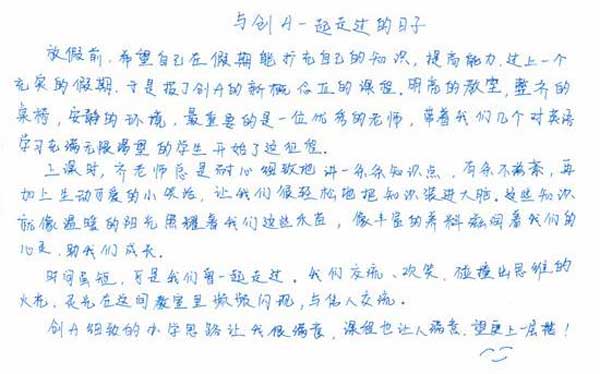 与创A一起走过的日子
放假前,希望自己在假期能扩充自己的知识,提高能力,过上一个
充实的假期.于是报了创A的新概念Ⅱ的课程.明亮的教室,整齐的
桌椅,安静的环境,最重要的是一位优秀的老师,带着我们几个对英语
学习充满无限渴望的学生开始了这征程.
上课时,齐老师总是耐心细致地讲一条条知识点,有条不紊,再
加上生动可爱的小笑话,让我们很轻松地把知识装进大脑.这些知识
就像温暖的阳光照耀着我们这些禾苗,像丰富的养料滋润着我们的
心灵,助我们成长.
时间虽短,可是我们曾一起走过.我们交流、欢笑,碰撞出思维的
火花,灵光在这间教室里频频闪现,与佳人交流.
创A细致的办学思路让我很满意,课程也让人满意,望更上一层楼!